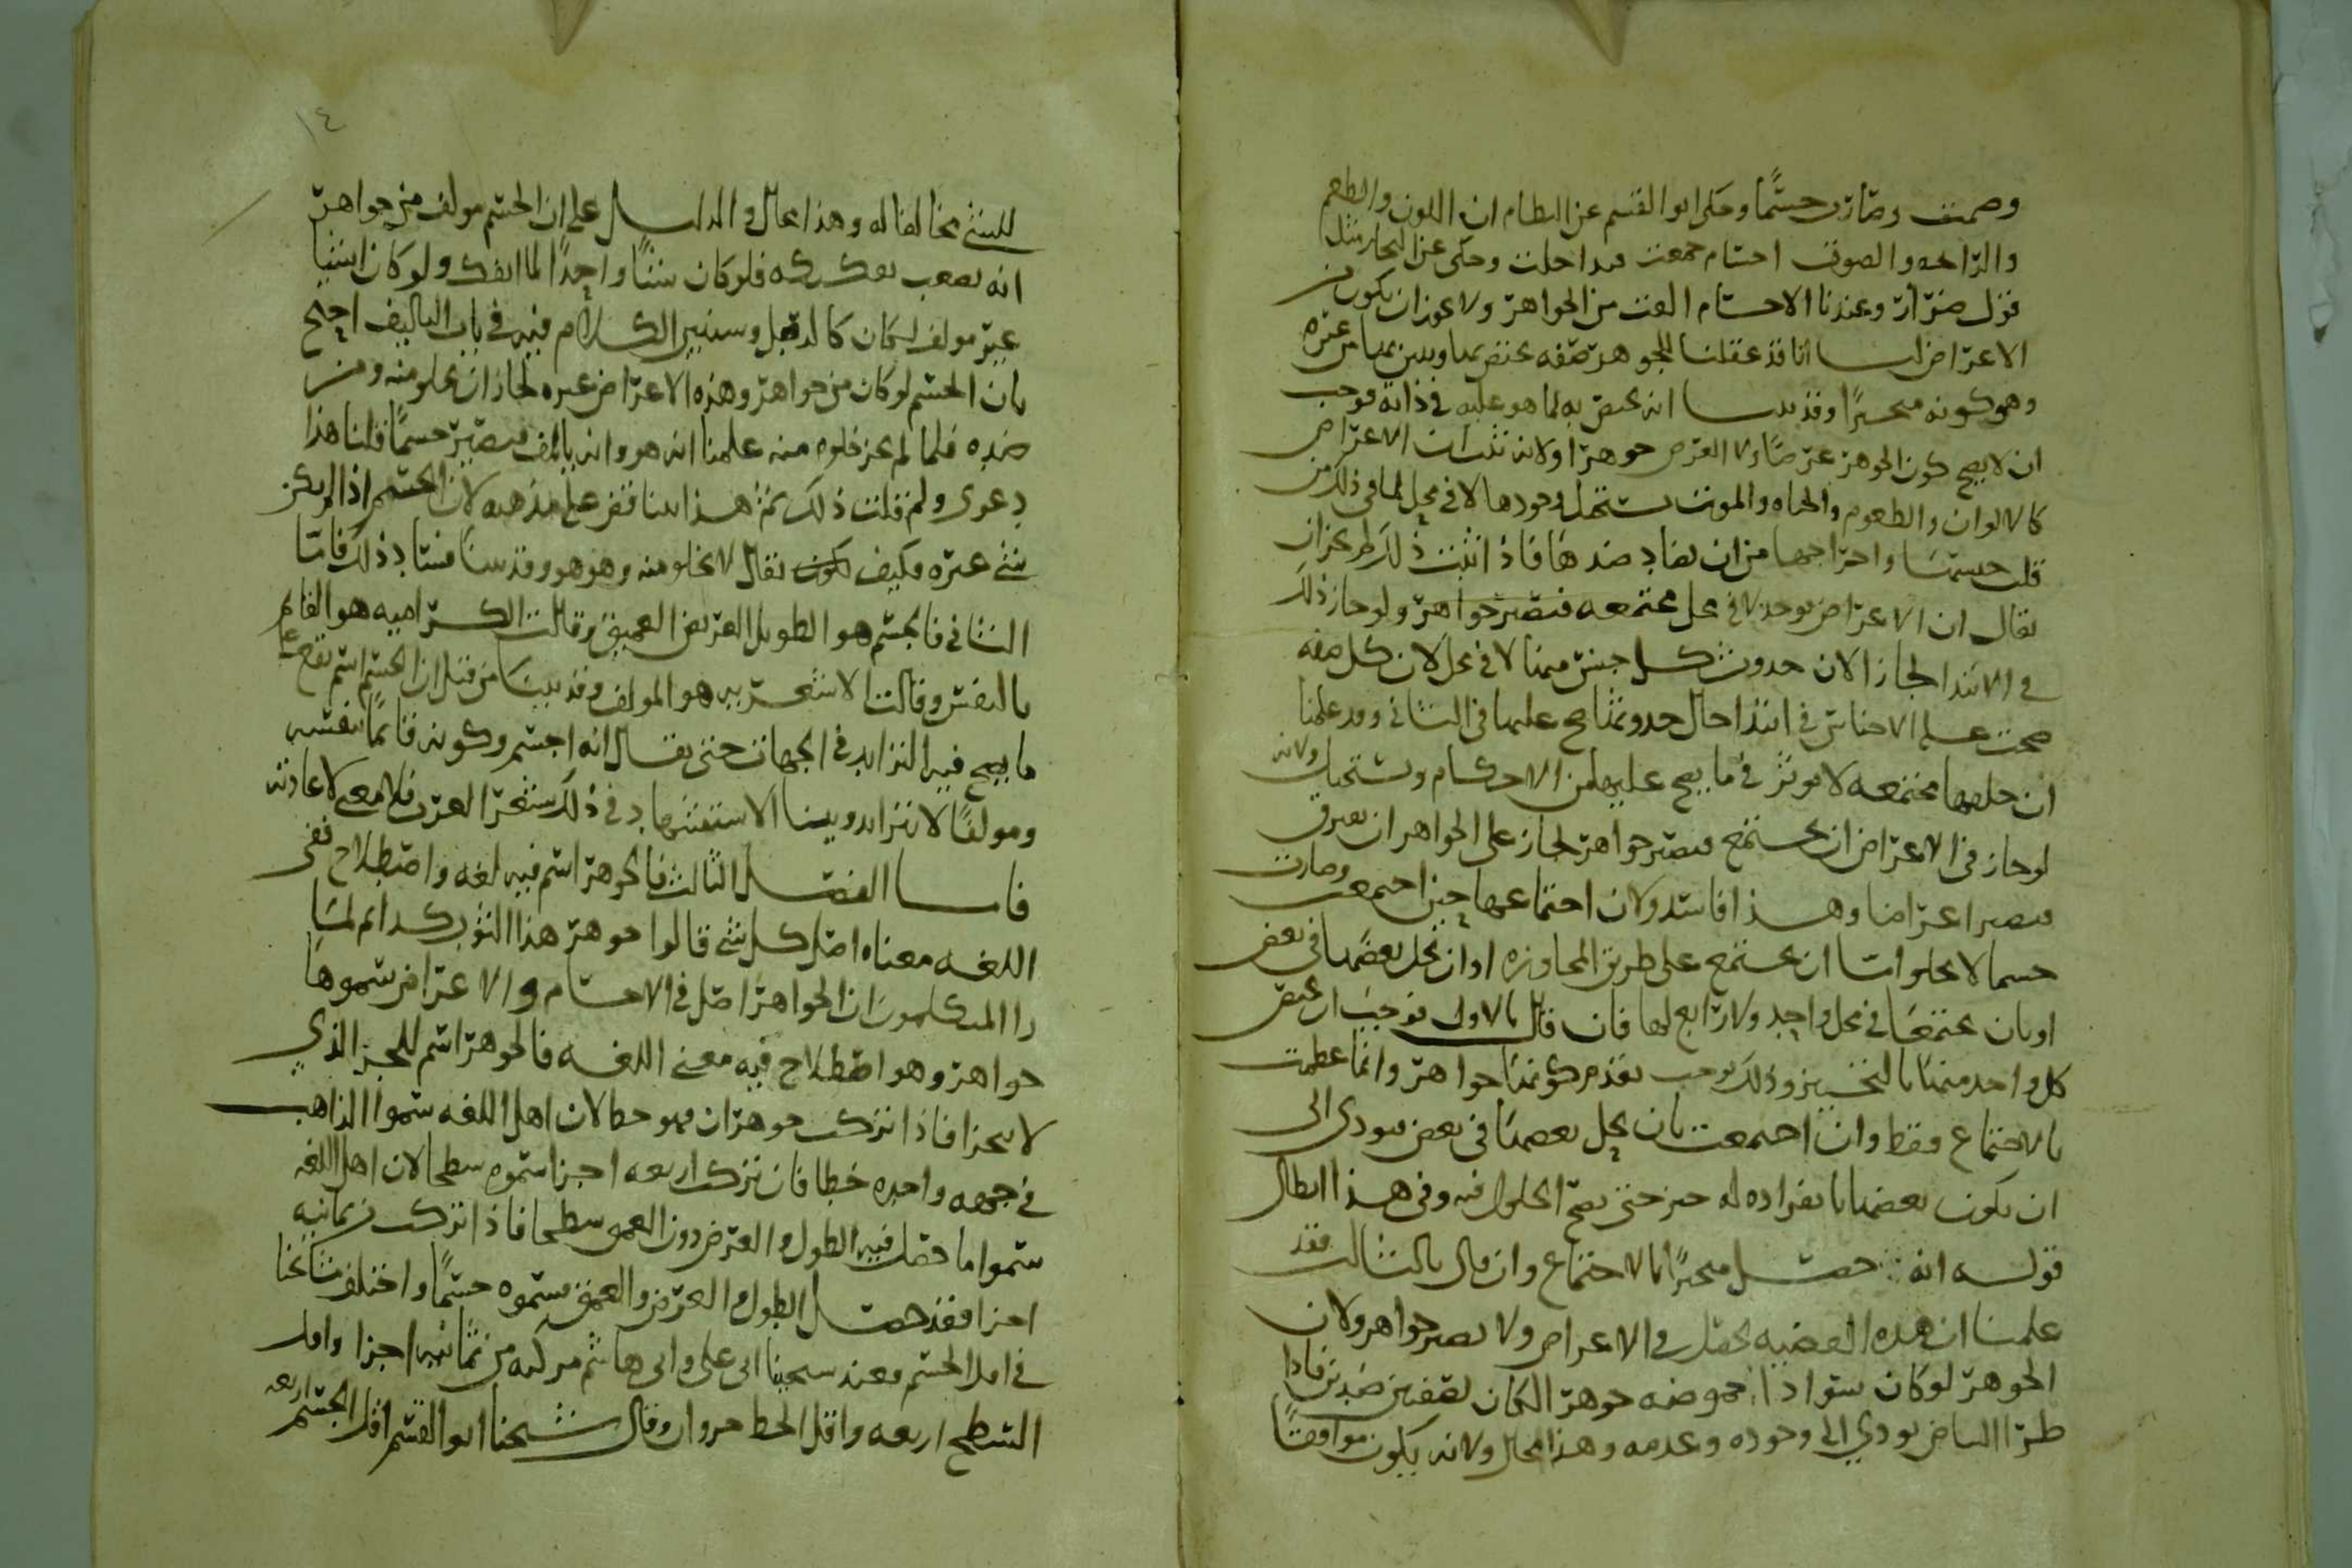 وصمت وصارت جسمًا وحكى ابو القسم عن النظام ان اللون والطعم
والرائحه والصوت اجسام جمعت فتداخلت وحكى عن النجار مثل
قول ضرار وعندنا الاجسام الفت من الجواهر ولا يجوز ان يكون من
الاعراض لـنا انا قد عقلنا للجوهر صفه يختص بها ويبين بها من غيره
وهو كونه متحيزًا وقد بينـا انه يختص به لما هو عليه في ذاته فوجب
ان لا يصح كون الجوهر عرضًا ولا العرض جوهرا ولانه ثبت ان الاعراض
كالالوان والطعوم والحياه والموت يستحيل وجودها لا في محل لما في ذلك من
قلب جنسها واخراجها من ان يضاد ضدها فاذا ثبت ذلك لم يجز ان
يقال ان الاعراض توجد لا في محل مجتمعه فتصير جواهر ولو جاز ذلك
في الابتدا لجاز الان حدوث كل جنس منها لا في محل لان كل صفه
صحت على الاجناس في ابتدا حال حدوثها صح عليها في الثاني وقد علمنا
ان جعلها مجتمعه لا يوثر في ما يصح عليها من الاحكام ويستحيل ولانه
لو جاز في الاعراض ان يجتمع فيصير جواهر لجاز على الجواهر ان يفترق
فيصير اعراضا وهـذا فاسد ولان اجتماعها حين اجتمعت وصارت
جسما لا يخلو اما ان يجتمع على طريق المجاوره او ان يحل بعضها في بعض
او بان يجتمعا في محل واحد ولا رابع لها فان قال بالاول فوجب ان يختص
كل واحد منها بالتحيز وذلك يوجب تقدم كونها جواهر وانما عظمت
بالاجتماع فقط وان اجتمعت بان يحل بعضها في بعض فيودى الى
ان يكون بعضها بانفراده له حيز حتى يصح الحلول فيه وفي هـذا ابطال
قولـه انه حصـل متحيزًا بالاجتماع وان قال بالثالث فقد
علمنا ان هذه القضيه تحصل في الاعراض ولا تصير جواهر ولان
الجوهر لو كان سوادا وحموضه جوهرا لكان لصفتين ضدين فاذا
طرا البياض يودي الى وجوده وعدمه وهذا محال ولانه يكون موافقًا
للشي مخالفا له وهذا محال والدليـل على ان الجسم مولف من جواهر
انه يصعب تفكيكه فلو كان شيئًا واحدًا لما انفك ولو كان اشيا
غير مولف لكان كالدقيق وسنبين الكلام فيه في باب التاليف احتج
بان الجسم لو كان من جواهر وهذه الاعراض غيره لجاز ان يخلو منه ومن
ضده فلما لم يجز خلوه منه علمنا انه هو وانه بالتالف فيصير جسمًا قلنا هذا
دعوى ولم قلت ذلك ثم هـذا ايضا نقض على مذهبه لان الجسم اذا لم يكن
شي غيره فكيف يكون يقال لا يخلو منه وهو هو وقد بينـا فساد ذلك فاما
الثاني فالجسم هو الطويل العريض العميق وقالت الكراميه هو القائم
بالنفس وقالت الاشعريه هو المولف وقد بينـا من قبل ان الجسم اسم يقع على
ما يصح فيه التزايد في الجهات حتى يقال انه اجسم وكونه قائمًا بنفسه
ومولفًا لا يتزايد وبينـا الاستشهاد في ذلك بشعر العرب فلا معنى لاعادته
فامـا الفصـل الثالث فالجوهر اسم فيه لغه واصطلاح ففي
اللغـه معناه اصل كل شي قالوا جوهر هذا الثوب كذا ثم لمـا
راا المتكلمون ان الجواهر اصل في الاجسام والاعراض سموها
جواهر وهو اصطلاح فيه معنى اللغـه فالجوهر اسم للجز الذي
لا يتجزا فاذا تركب جوهران فهو خطا لان اهل اللغه سموا الذاهب
في جهه واحده خطا فان تركب اربعه اجزا سموه سطحا لان اهل اللغه
سموا ما حصل فيه الطول والعرض دون العمق سطحا فاذا تركب من ثمانيه
اجزا فقد حصـل الطول والعرض والعمق فسموه جسمًا واختلف مشايخنا
في اقل الجسم فعند شيخينا ابي علي وابي هاشم مركبه من ثمانيه اجزا واقل
السطح اربعه واقل الخط جزوان وقال شيخنا ابو القسم اقل الجسم اربعه